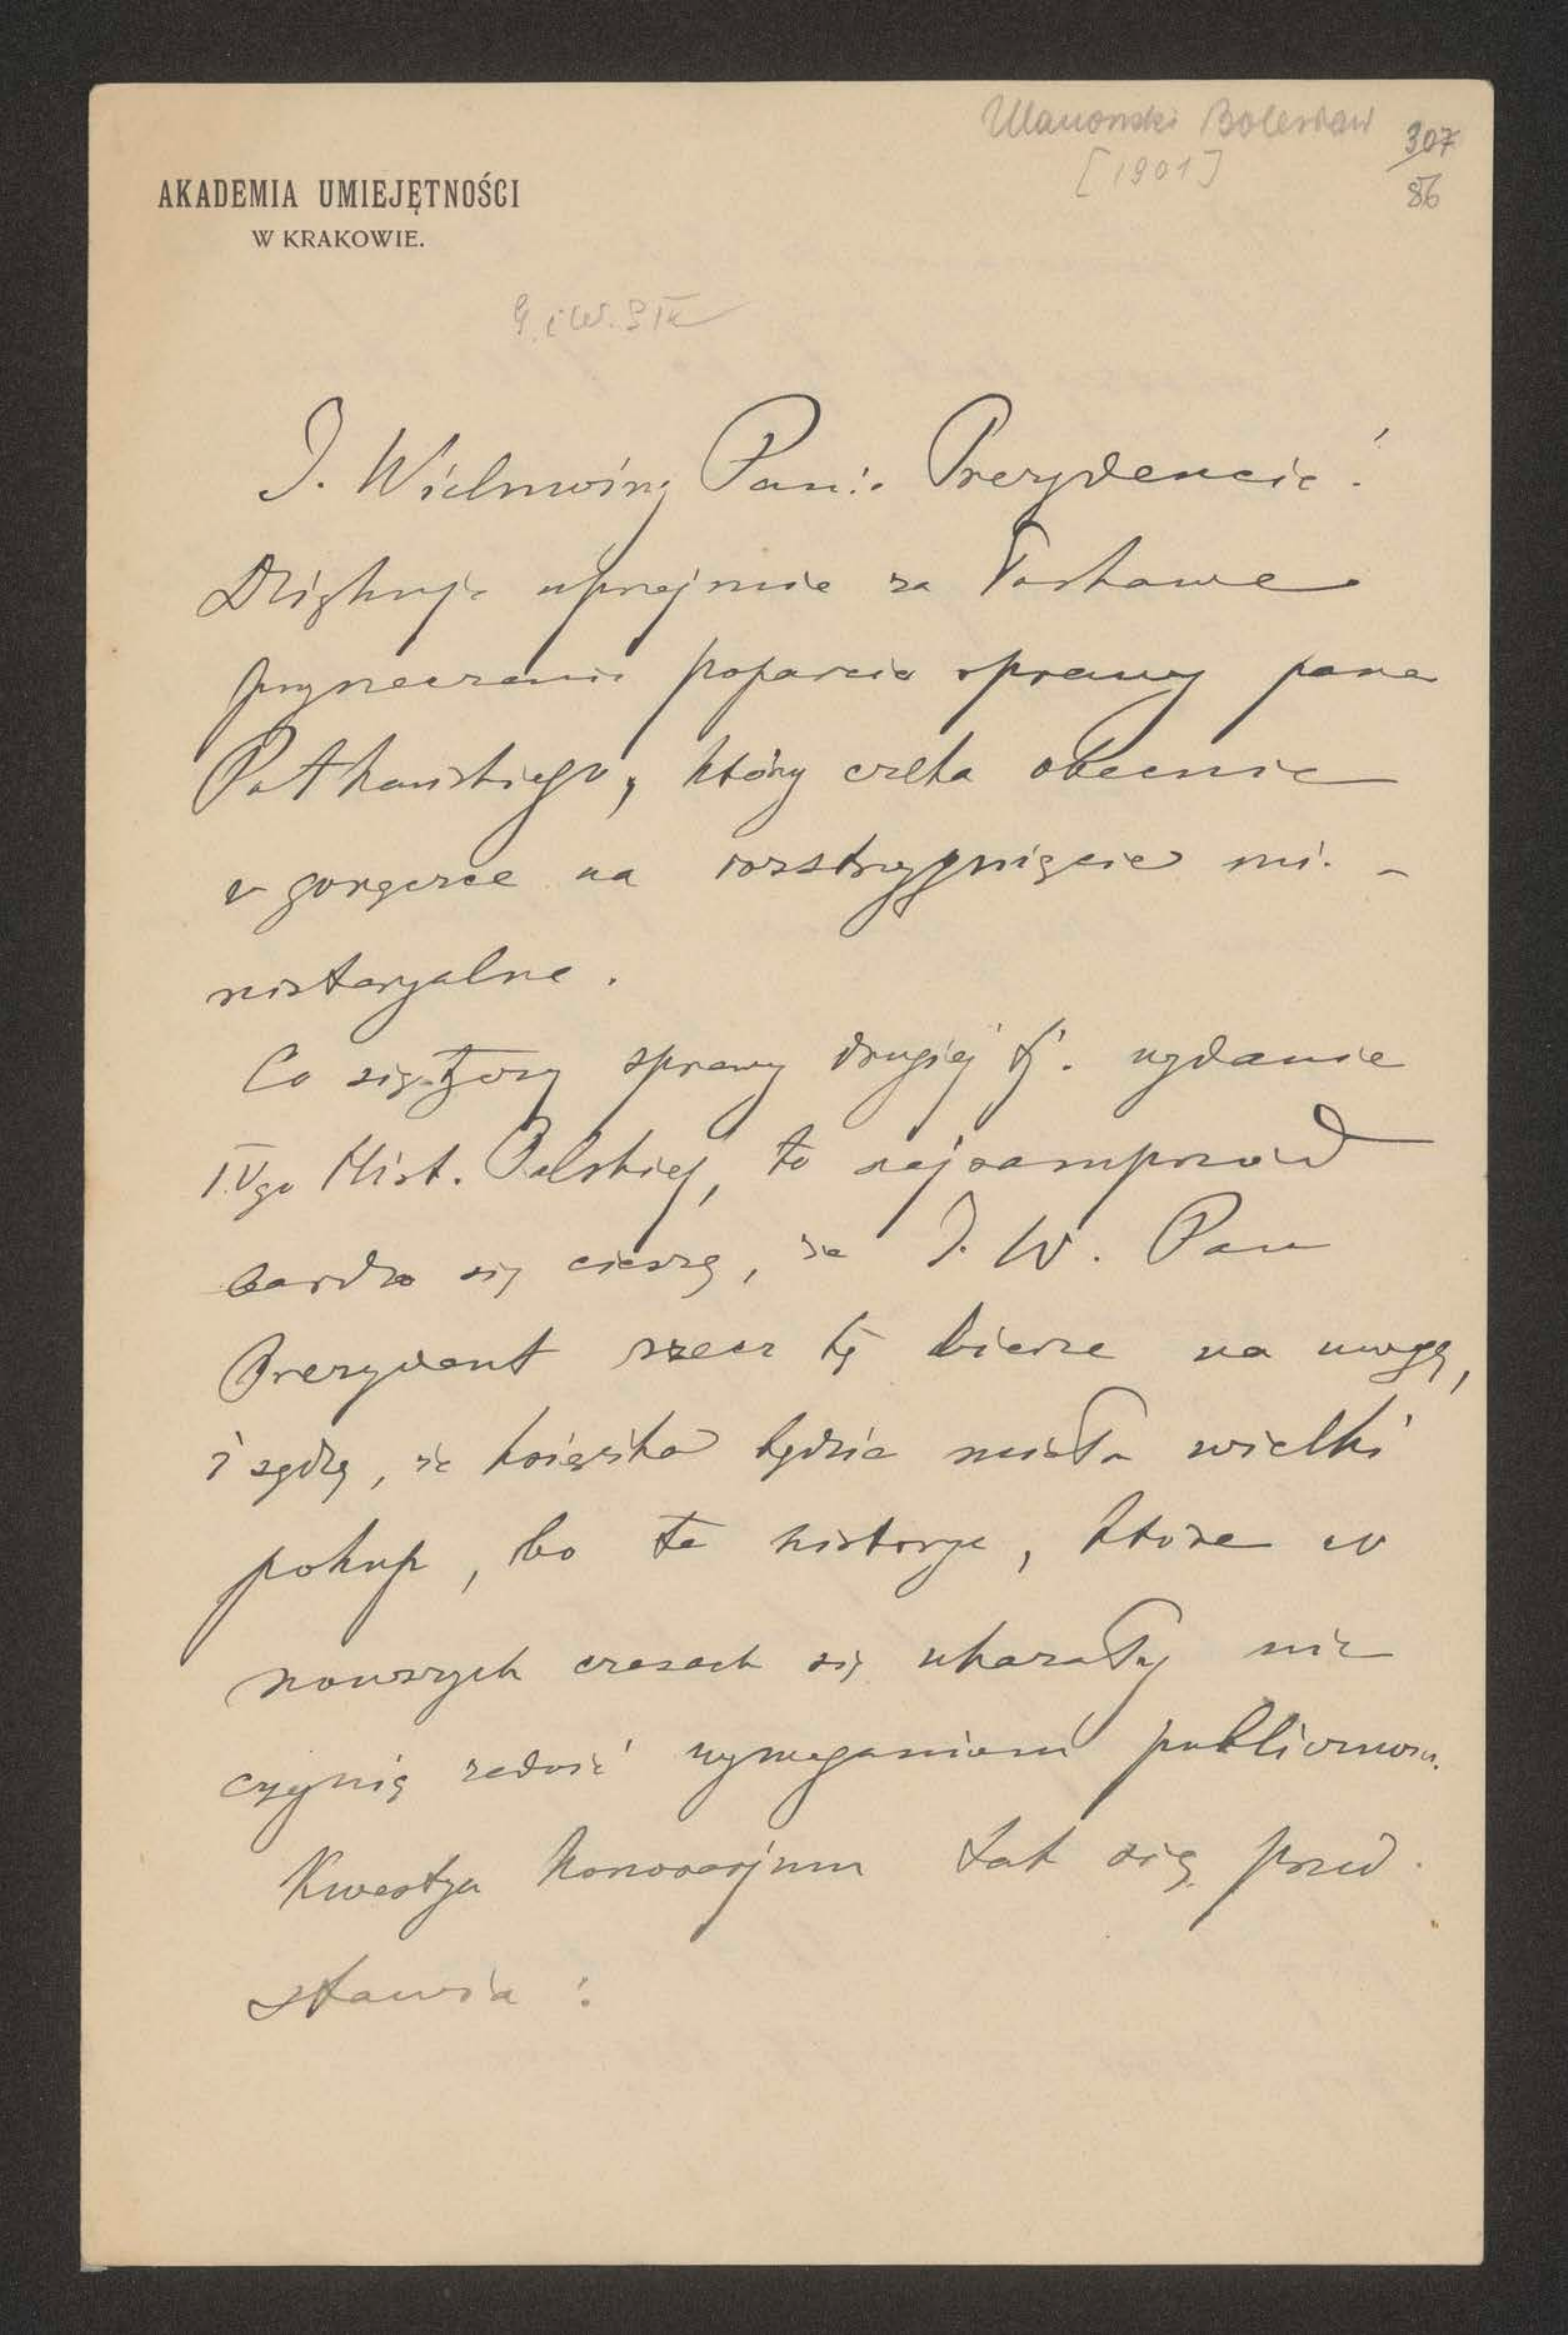 Ulanowski Bolesław
[1901]
307
86
AKADEMIA UMIEJĘTNOŚCI
W KRAKOWIE.
J. Wielmożny Panie Prezydencie!
Dziękuję uprzejmie za łaskawe
przyrzeczenie poparcia sprawy pana
Potkańskiego, który czeka obecnie
w gorączce na rozstrzygnięcie mi-
nisteryalne.
Co się tyczy sprawy drugiej tj. wydanie
IVgo Hist. Polskiej, to najsamprzód
bardzo się cieszę, że J. W. Pan
Prezydent rzecz tę bierze na uwagę,
i sądzę, że książka będzie miała wielki
pokup, bo te historye, które w
nowszych czasach się ukazały nie
czynią zadość wymaganiom publicznem.
Kwestya honoraryum tak się przed-
stawia: